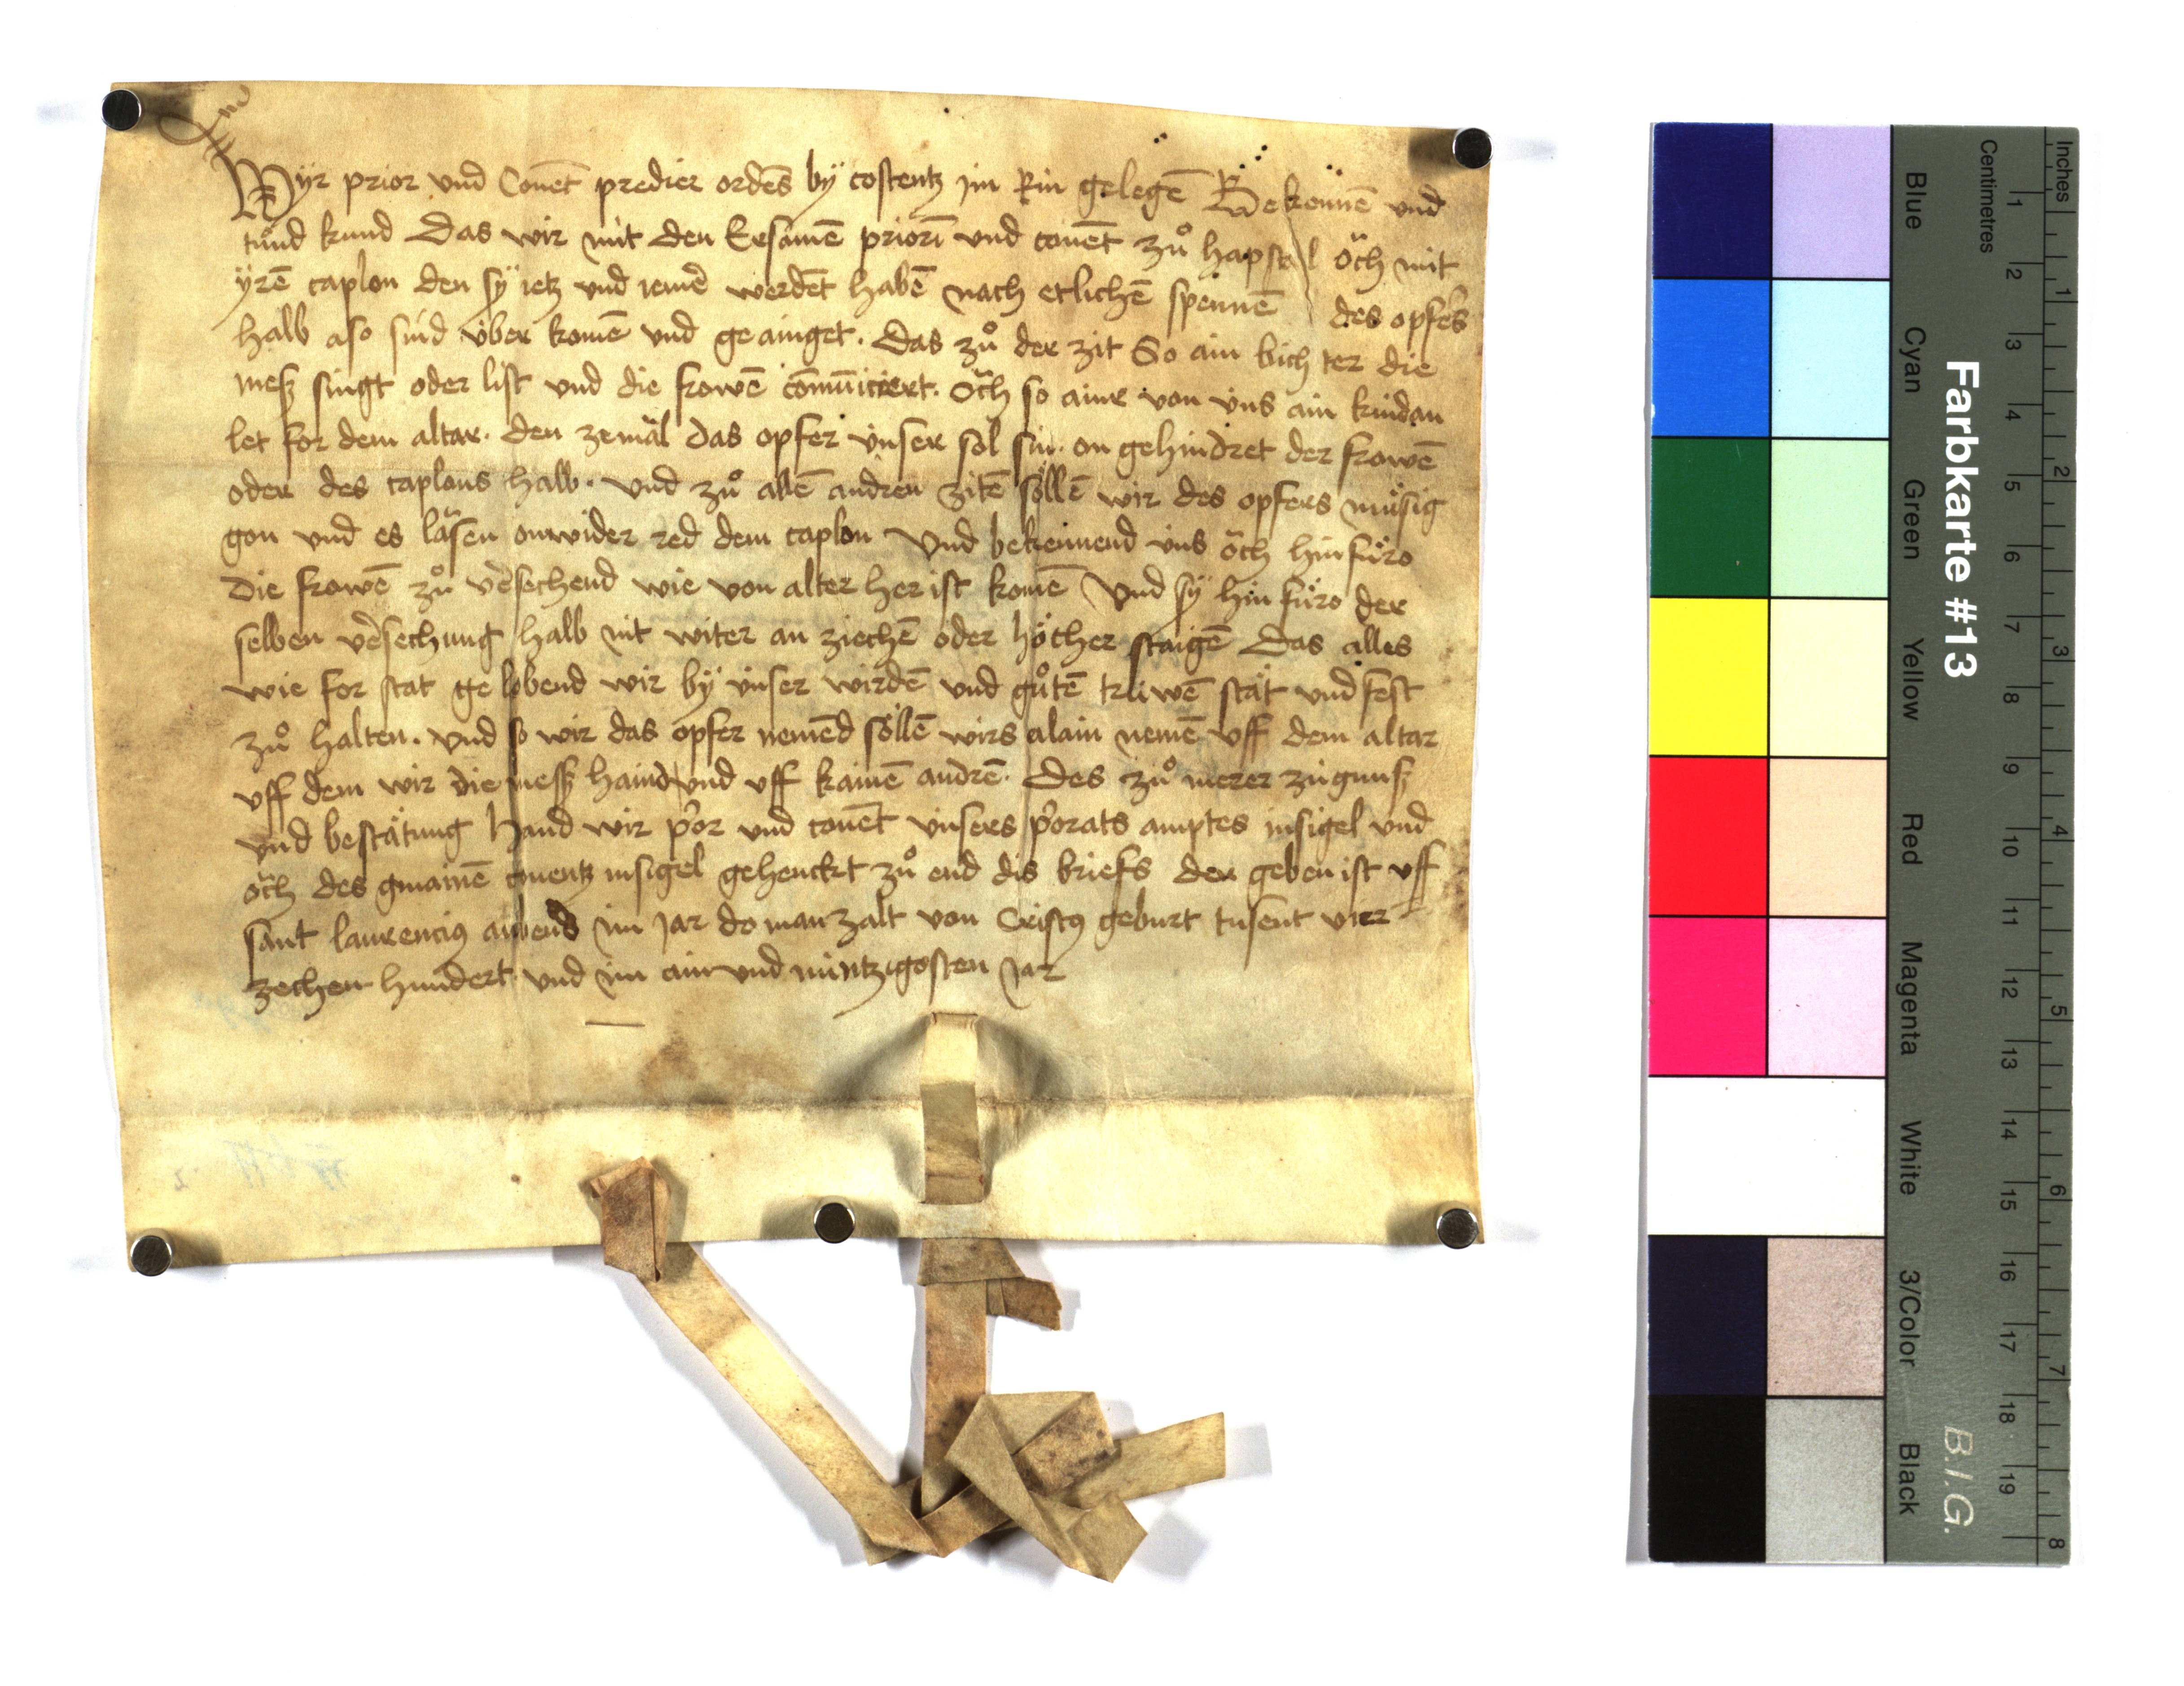 Wÿr prior vnd Conēt predier ordēs bÿ costentz jm Rin gelegē Bekennē vnd
tůnd kund Das wir mit den Ersamē priorī vnd conēt zů hapstal och mit
ÿrē caplon den sÿ ietz vnd iemē werdēt habē nach etlichē spennē des opfers
halb also sind vber komē vnd geainget. Das zů der zit So ain bichter die
mesz singt oder list vnd die frowē comūiciert. och so ainr von vns ain kindan
let for dem altar. den zemäl das opfer vnser sol sin. on gehindret der frowē
oder des caplons halb. vnd zů allē andren zitē söllē wir des opfers müsig
gon vnd es läsen onwider red dem caplon Vnd bekennend vns och hinfüro
Die frowē zů vẽsechend wie von alter her ist komē Vnd sÿ hinfüro der
selben vẽsechung halb nit witer an ziechē oder höcher staigē Das alles
wie for stat gelobend wir bÿ vnser wirdē vnd gůtē trüwē stät vnd fest
zů halten. vnd so wir das opfer nemēd söllē wirs alain nemē vff dem altar
vff dem wir die mesz haind vnd vff kainē andrē. Des zů merer zügnusz
vnd bestätung Hand wir p̃or vnd conēt vnsers p̃orats amptes insigel vnd
och des gmainē conentz insigel gehenckt zů end dis briefs der geben ist vff
sant laurencius aubend im jar do man zalt von Cristus geburt tusent vier
zechen hundert vnd im ain vnd nüntzigosten jar
Farbkarte #13
B.I.G.
Blue Cyan Green Yellow Red Magenta White 3/Color Black
Centimetres 1 2 3 4 5 6 7 8 9 10 11 12 13 14 15 16 17 18 19
Inches 1 2 3 4 5 6 7 8